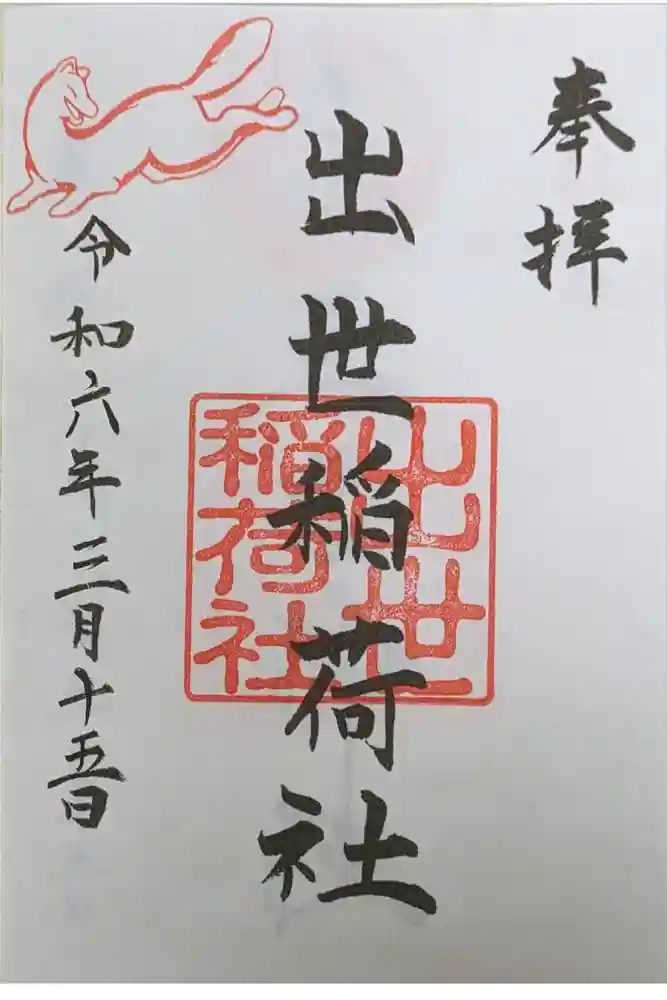 奉拝
出世稲荷社
出世
稲荷社
令和六年三月十五日